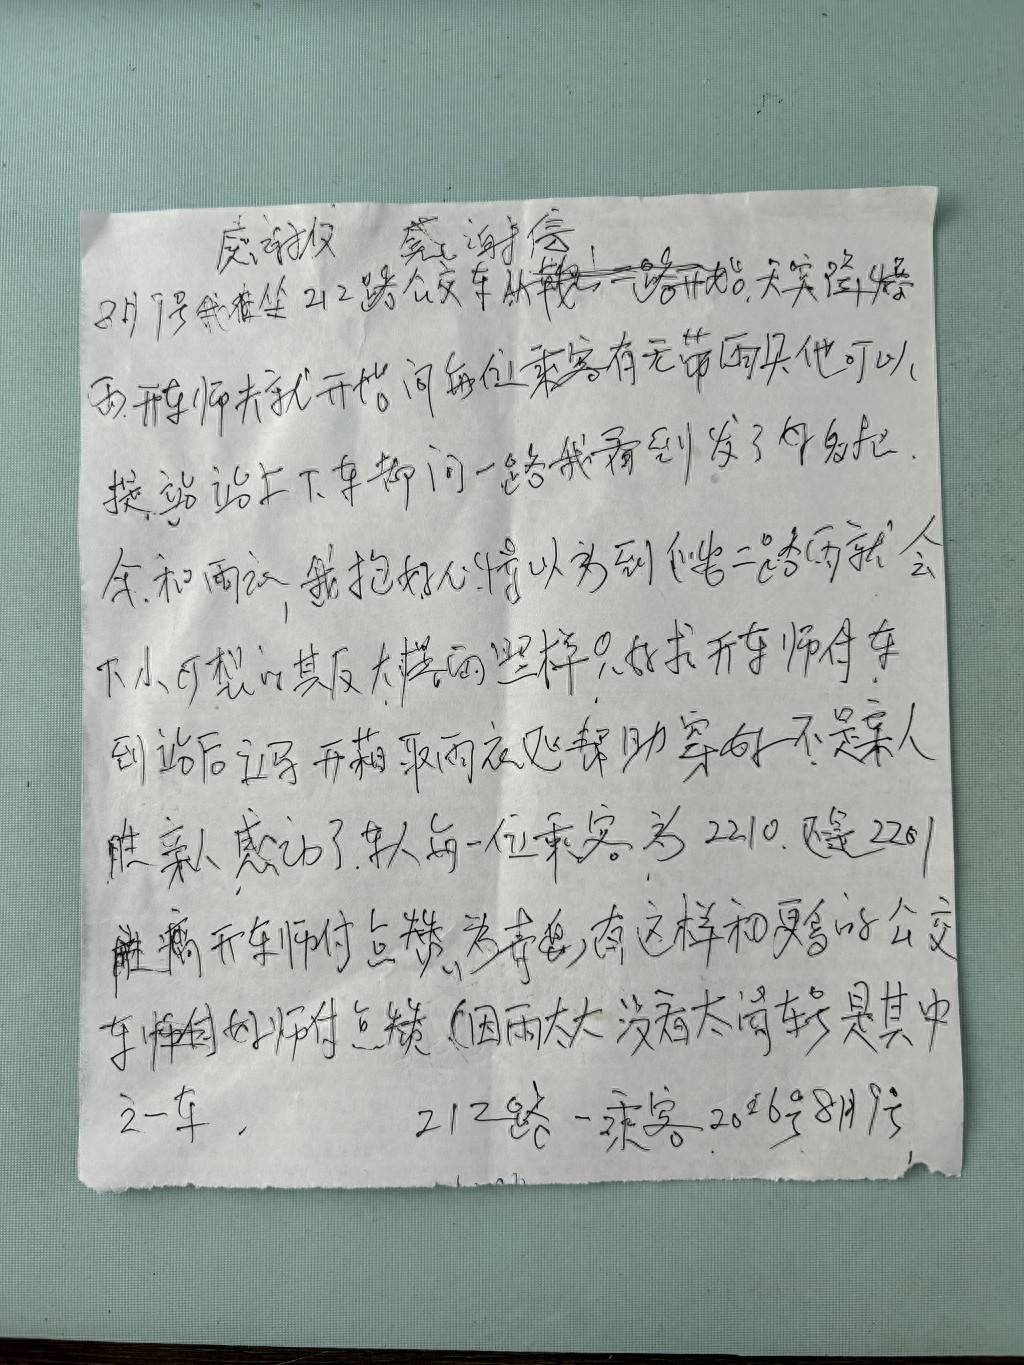 感谢 感谢信
8月9号我坐212路公交车从 一路开始.天突
雨.开车师夫就开始问每位乘客有无带雨具他可以、
提.站站上下车都问一路我看到发了好多
伞.和雨衣,我抱好心情以为到 二路雨就会
下小可想的其反大 的 样只好求开车师付车
到站后 开箱取雨衣 帮助穿好不是亲人
胜亲人感动了.车人每一位乘客.为2210.还是2201
开车师付点赞、为青岛,有这样和 的公交
车 好师付点赞(因雨太大没看太清车号是其中
之一车. 212路一乘客.2026号8月9号